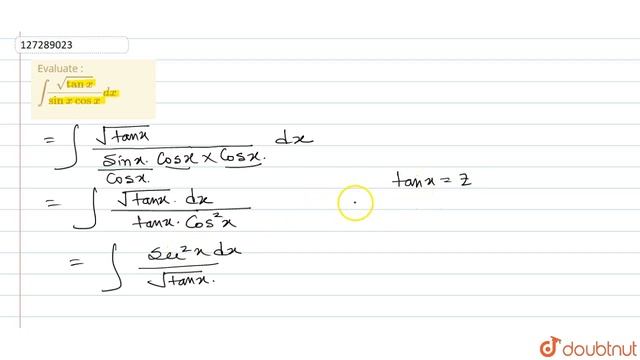 127289023
Evaluate :
∫ √tan x / sin x cos x dx
= ∫ √tanx / (sinx. Cosx × Cosx. / Cosx.) dx
tanx = z
= ∫ √tanx. dx / tanx. Cos²x
= ∫ Sec²x dx / √tanx.
doubtnut